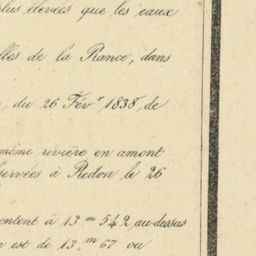 plus élevées que les eaux
de la Rance, dans
du 26 Févr. 1838, de
même rivière en amont
à Redon le 26
à 13m 542 au-dessus
est de 13,m 67 ou